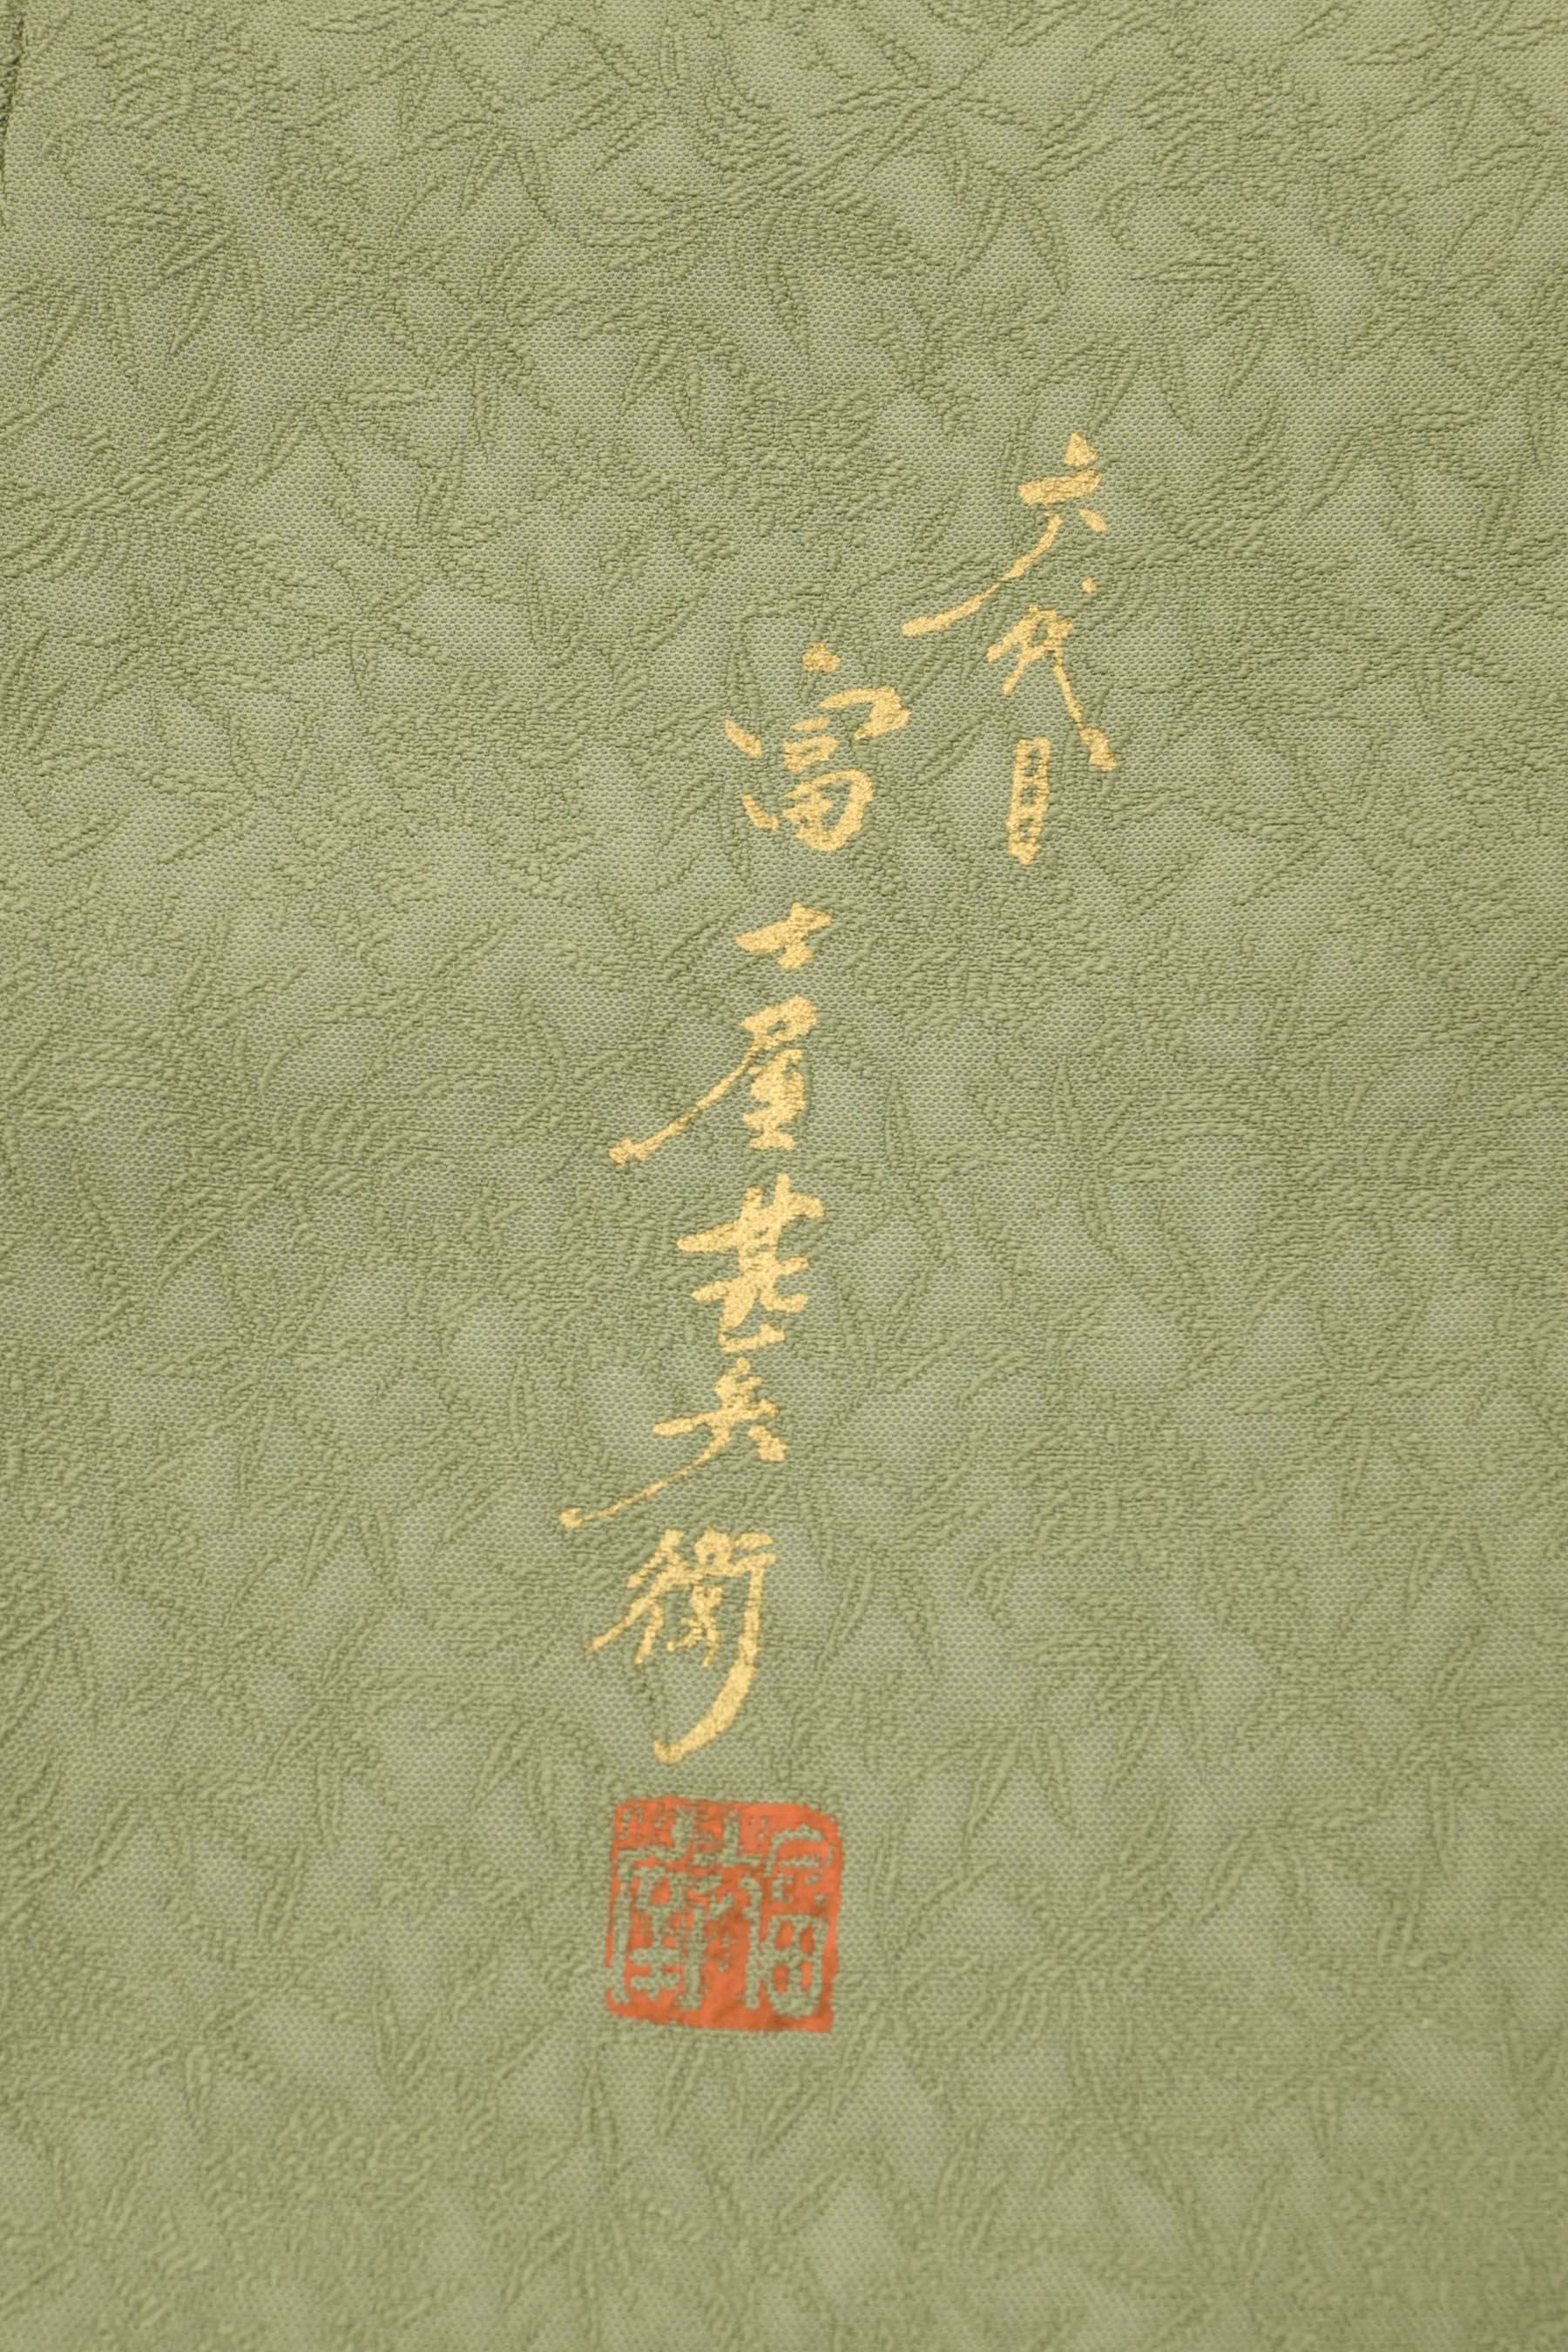 六代目
富士屋甚兵衛